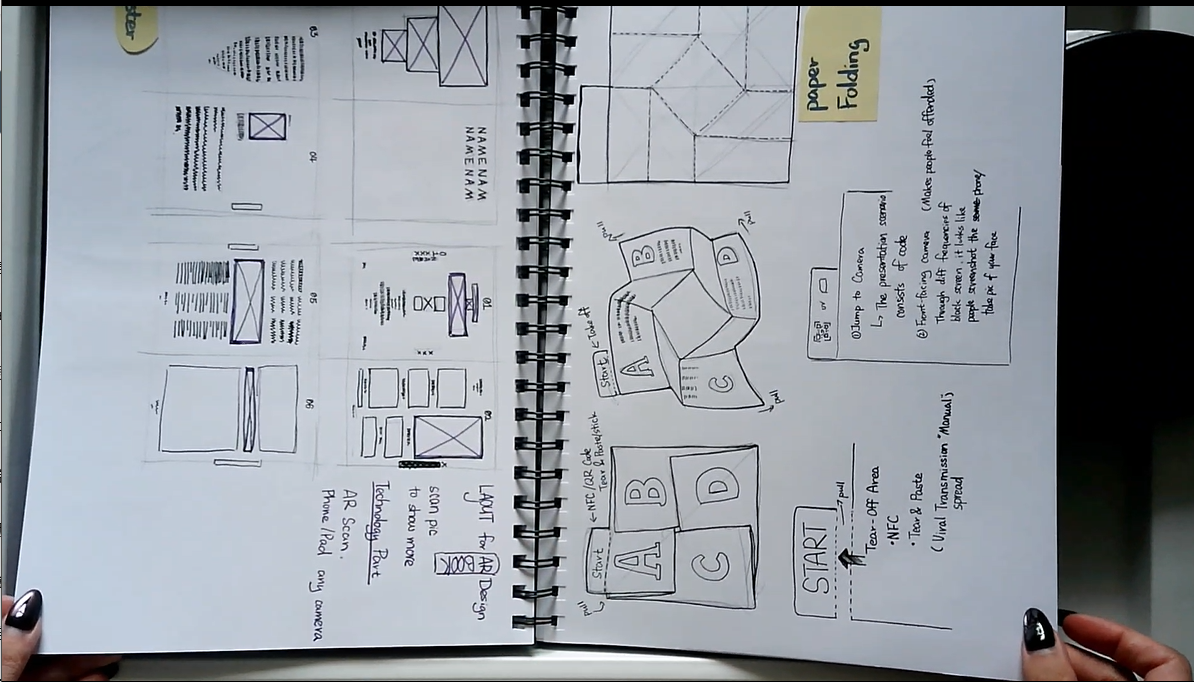 paper
Folding
pull
pull
B
D
Start
← Take off
A
C
pull
← NFC/QR Code
Tear & Paste/stick
Start
A
B
C
D
pull
START
pull
Tear-Off Area
• NFC
• Tear & Paste
(Viral Transmission "Manual")
spread
or
① Jump to Camera
↳ The presentation scenario
consists of code
② Front-facing camera (Makes people feel offended)
Through diff frequencies of
black screen, it looks like
people screenshot the some phone/
take pic of your face
ster
03
04
05
06
NAMENAM
NAMENAM
01
02
LAYOUT for AR Design
BOOK
scan pic
to show more
Technology Part
AR Scan,
Phone/Pad any camera